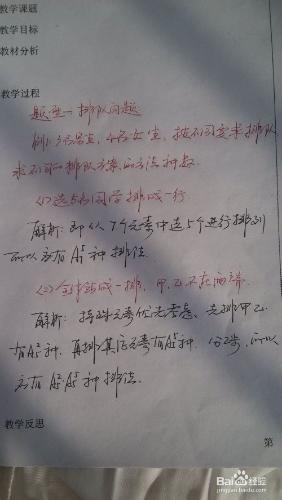 教学课题
教学目标
教材分析
教学过程
题型一 排队问题
例1. 3名男生，4名女生，按不同要求排队
求不同的排队方案的方法种数.
(1)选5名同学排成一行
解析：即从7个元素中选5个进行排列
所以共有A⁵₇种排法
(2)全体站成一排，甲.乙不在两端
解析：特殊元素优先考虑、先排甲乙
有A²₅种，再排其它元素有A⁵₅种，分2步，所以
共有A²₅A⁵₅种排法.
教学反思
第
Baidu经验
jingyan.baidu.com